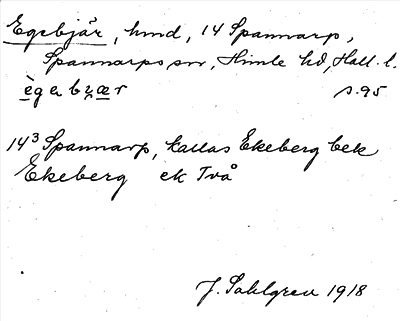 Egebjär, hmd, 14 Spannarp,
Spannarps sn, Himle hd, Hall. l.
ègabꝛær s. 95
14³ Spannarp, kallas Ekeberg bek
Ekeberg ek Två
J. Sahlgren 1918